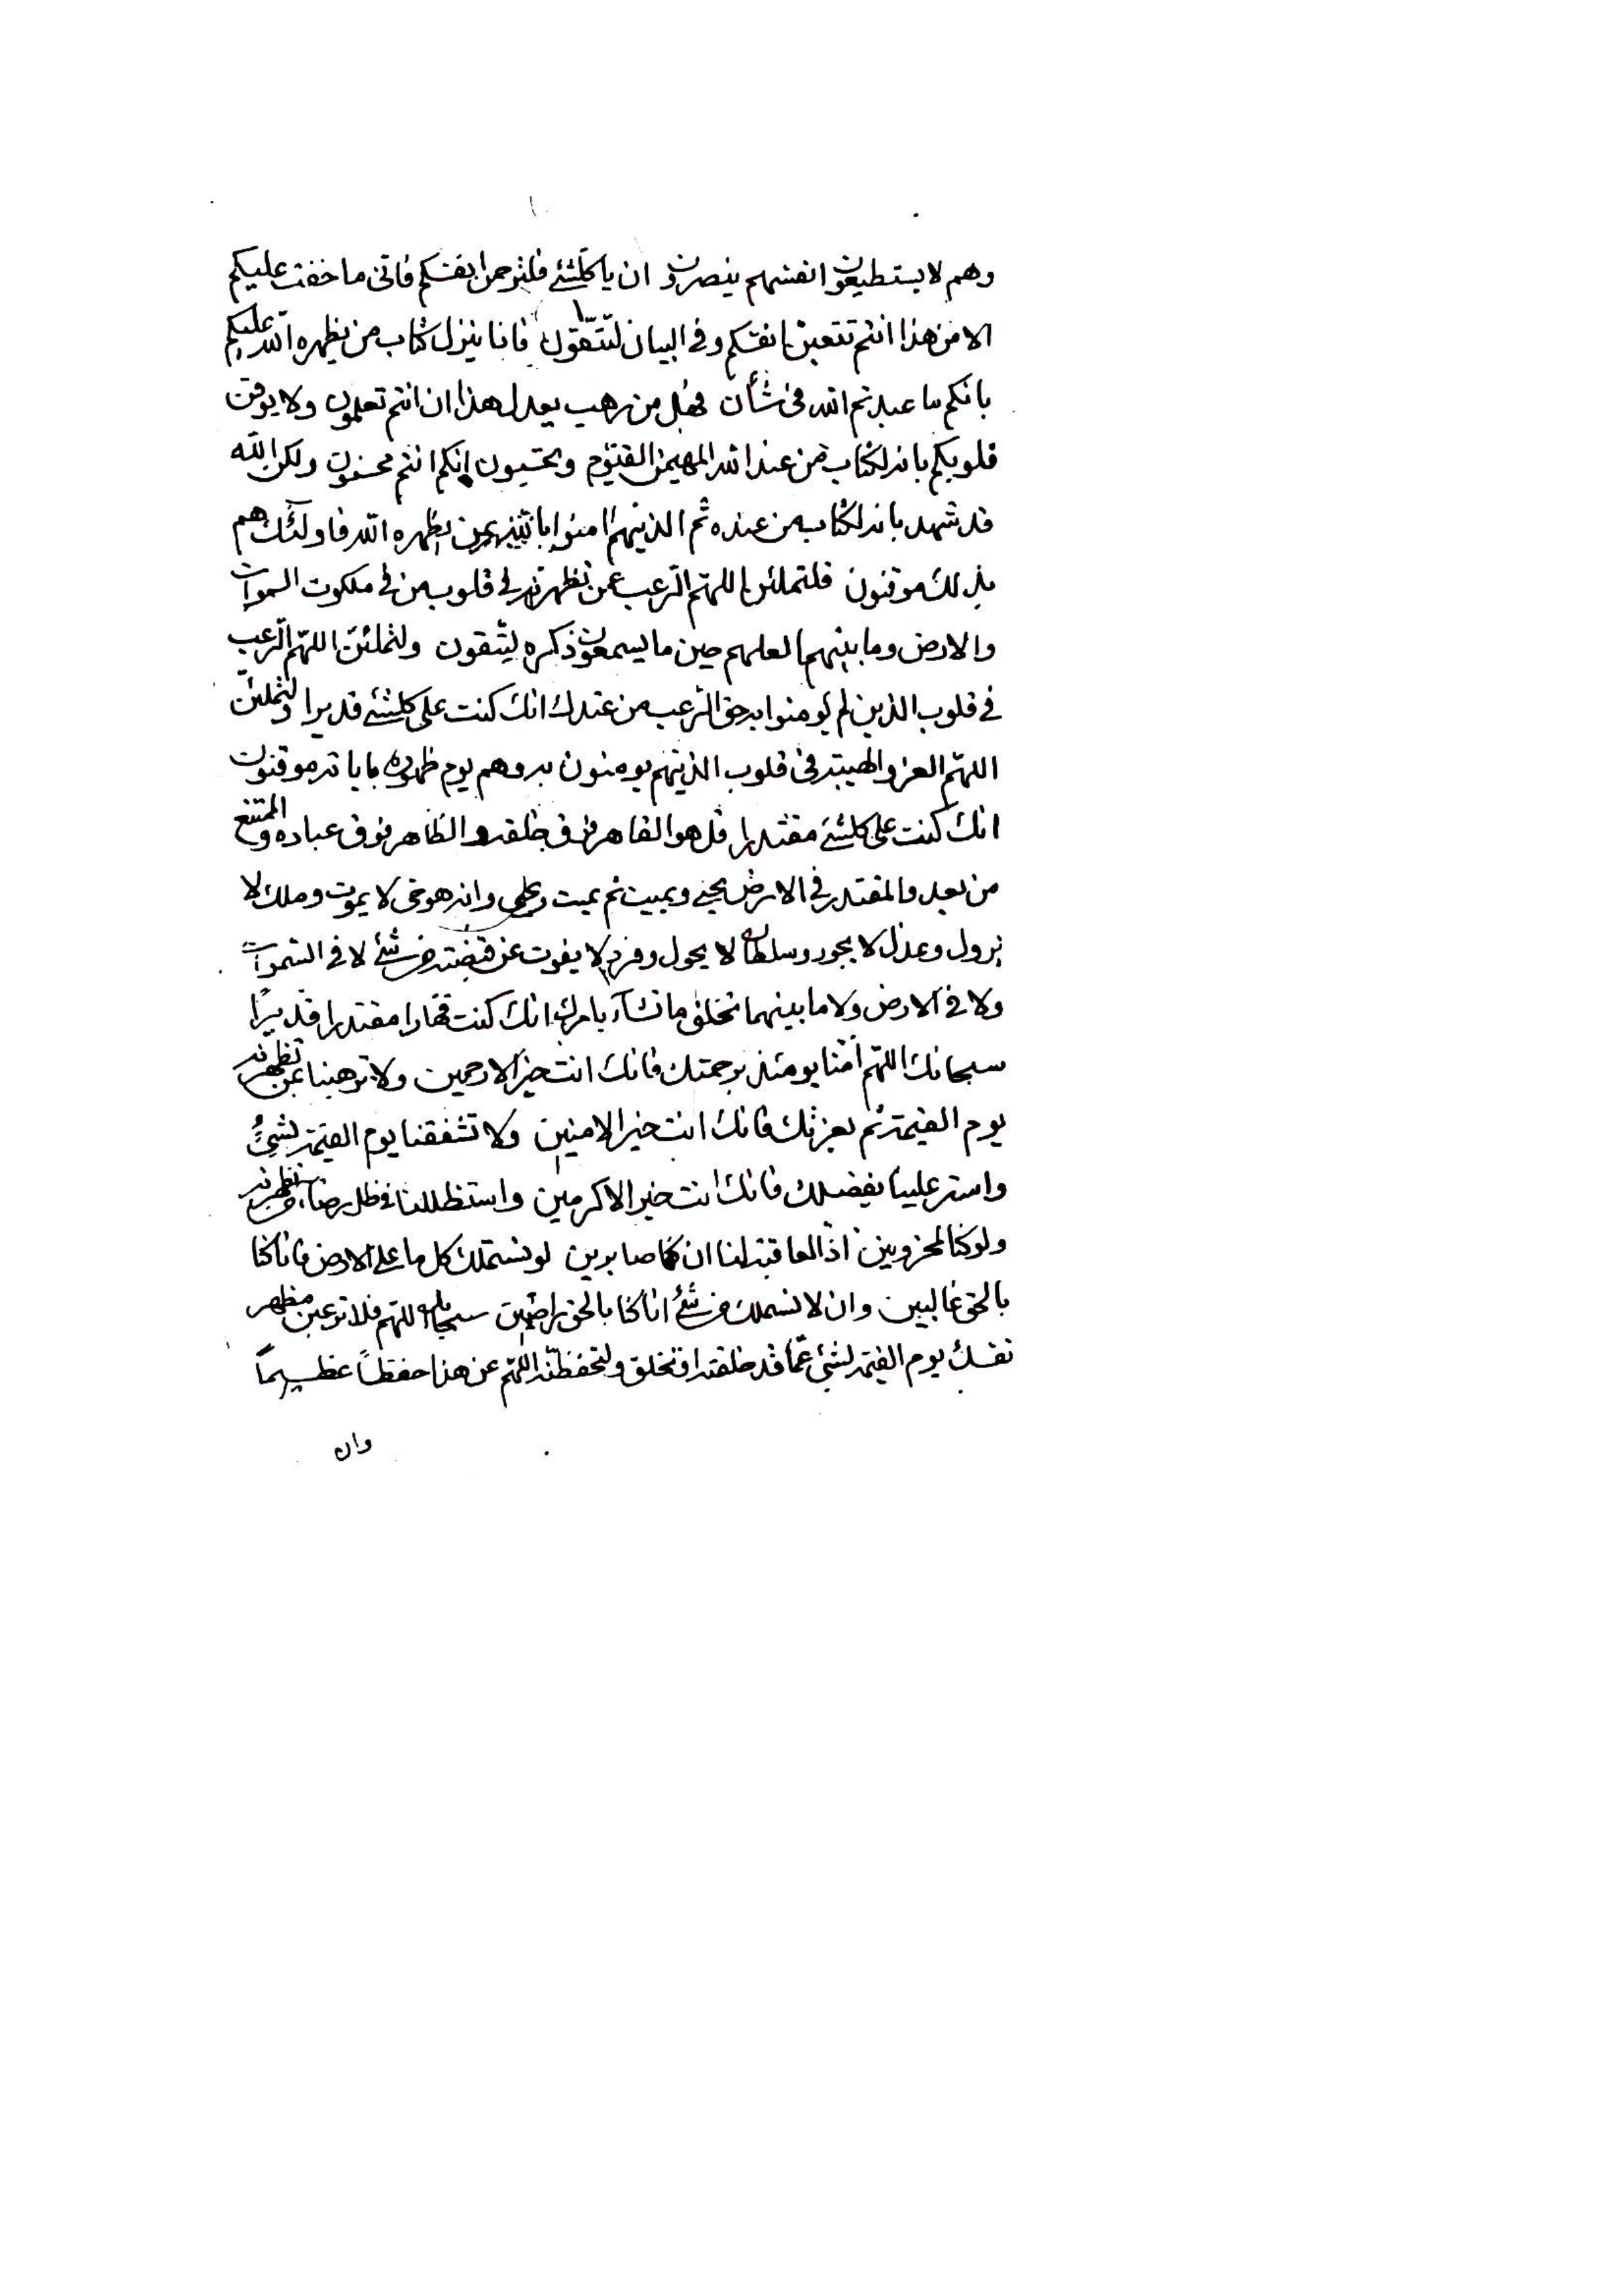 وهم لا يستطيعون انفسهم ينصرون ان يا كلشئ فلترحمن انفسكم فانى ما خفت عليكم
الا من هذا انتم تتعبن انفسكم وفى البيان لتتقون فاذا ينزل كتاب من يظهره الله عليكم
بانكم ما عبدتم الله فى شأن فهل من رهب يعدل هذا ان انتم تعلمون ولا يوقن
قلوبكم بانه لكتاب من عند الله المهيمن القيوم وتحسبون انكم انتم محسنون ولكن الله
قد شهد بانه لكتاب من عنده ثم الذينهم امنوا بمن يظهره الله فاولئك هم
بذلك موقنون فلتملئن اللهم الرعب عمن تظهرنه فى قلوب من فى ملكوت السموات
والارض وما بينهما لعلهم حين ما يسمعون ذكره ليتقون ولتملئن اللهم الرعب
فى قلوب الذين لم يؤمنوا به حق الرعب من عندك انك كنت على كلشئ قديرا ولتملئن
اللهم العز والهيبة فى قلوب الذينهم يومنون به وهم يوم ظهوره باياته موقنون
انك كنت على كلشئ مقتدرا قل هو القاهر فوق خلقه والظاهر فوق عباده والممتنع
من بعد والمقتدر فى الارض يحيى ويميت ثم يميت ويحيى وانه هو حى لا يموت وملك لا
يزول وعدل لا يجور وسلطان لا يحول وفرد لا يفوت عن قبضته من شئ لا فى السموات
ولا فى الارض ولا ما بينهما تخلق ما تشآء بامرك انك كنت قهارا مقتدرا قديرًا
سبحانك اللهم امنا يومئذ برحمتك فانك انت خير الارحمين ولا ترهبنا عمن تظهرنه
يوم القيمة ثم بعزتك فانك انت خير الامنين ولا تشفقنا يوم القيمة بشئ
واستر علينا بفضلك فانك انت خير الاكرمين واستظللنا فى ظل رضاء من تظهرنه
ولو كنا لمحزونين اذ العاقبة لنا ان كنا صابرين لو نستملك كل ما على الارض فانا كنا
بالحق غالبين وان لا نستملك من شئ انا كنا بالحق راضين سبحانك اللهم فلا ترعبن مظهر
نفسك يوم القيمة بشئ عما قد خلقته او تخلق ولتحفظنه اللهم عن هذا حفظاً عظيماً
وان